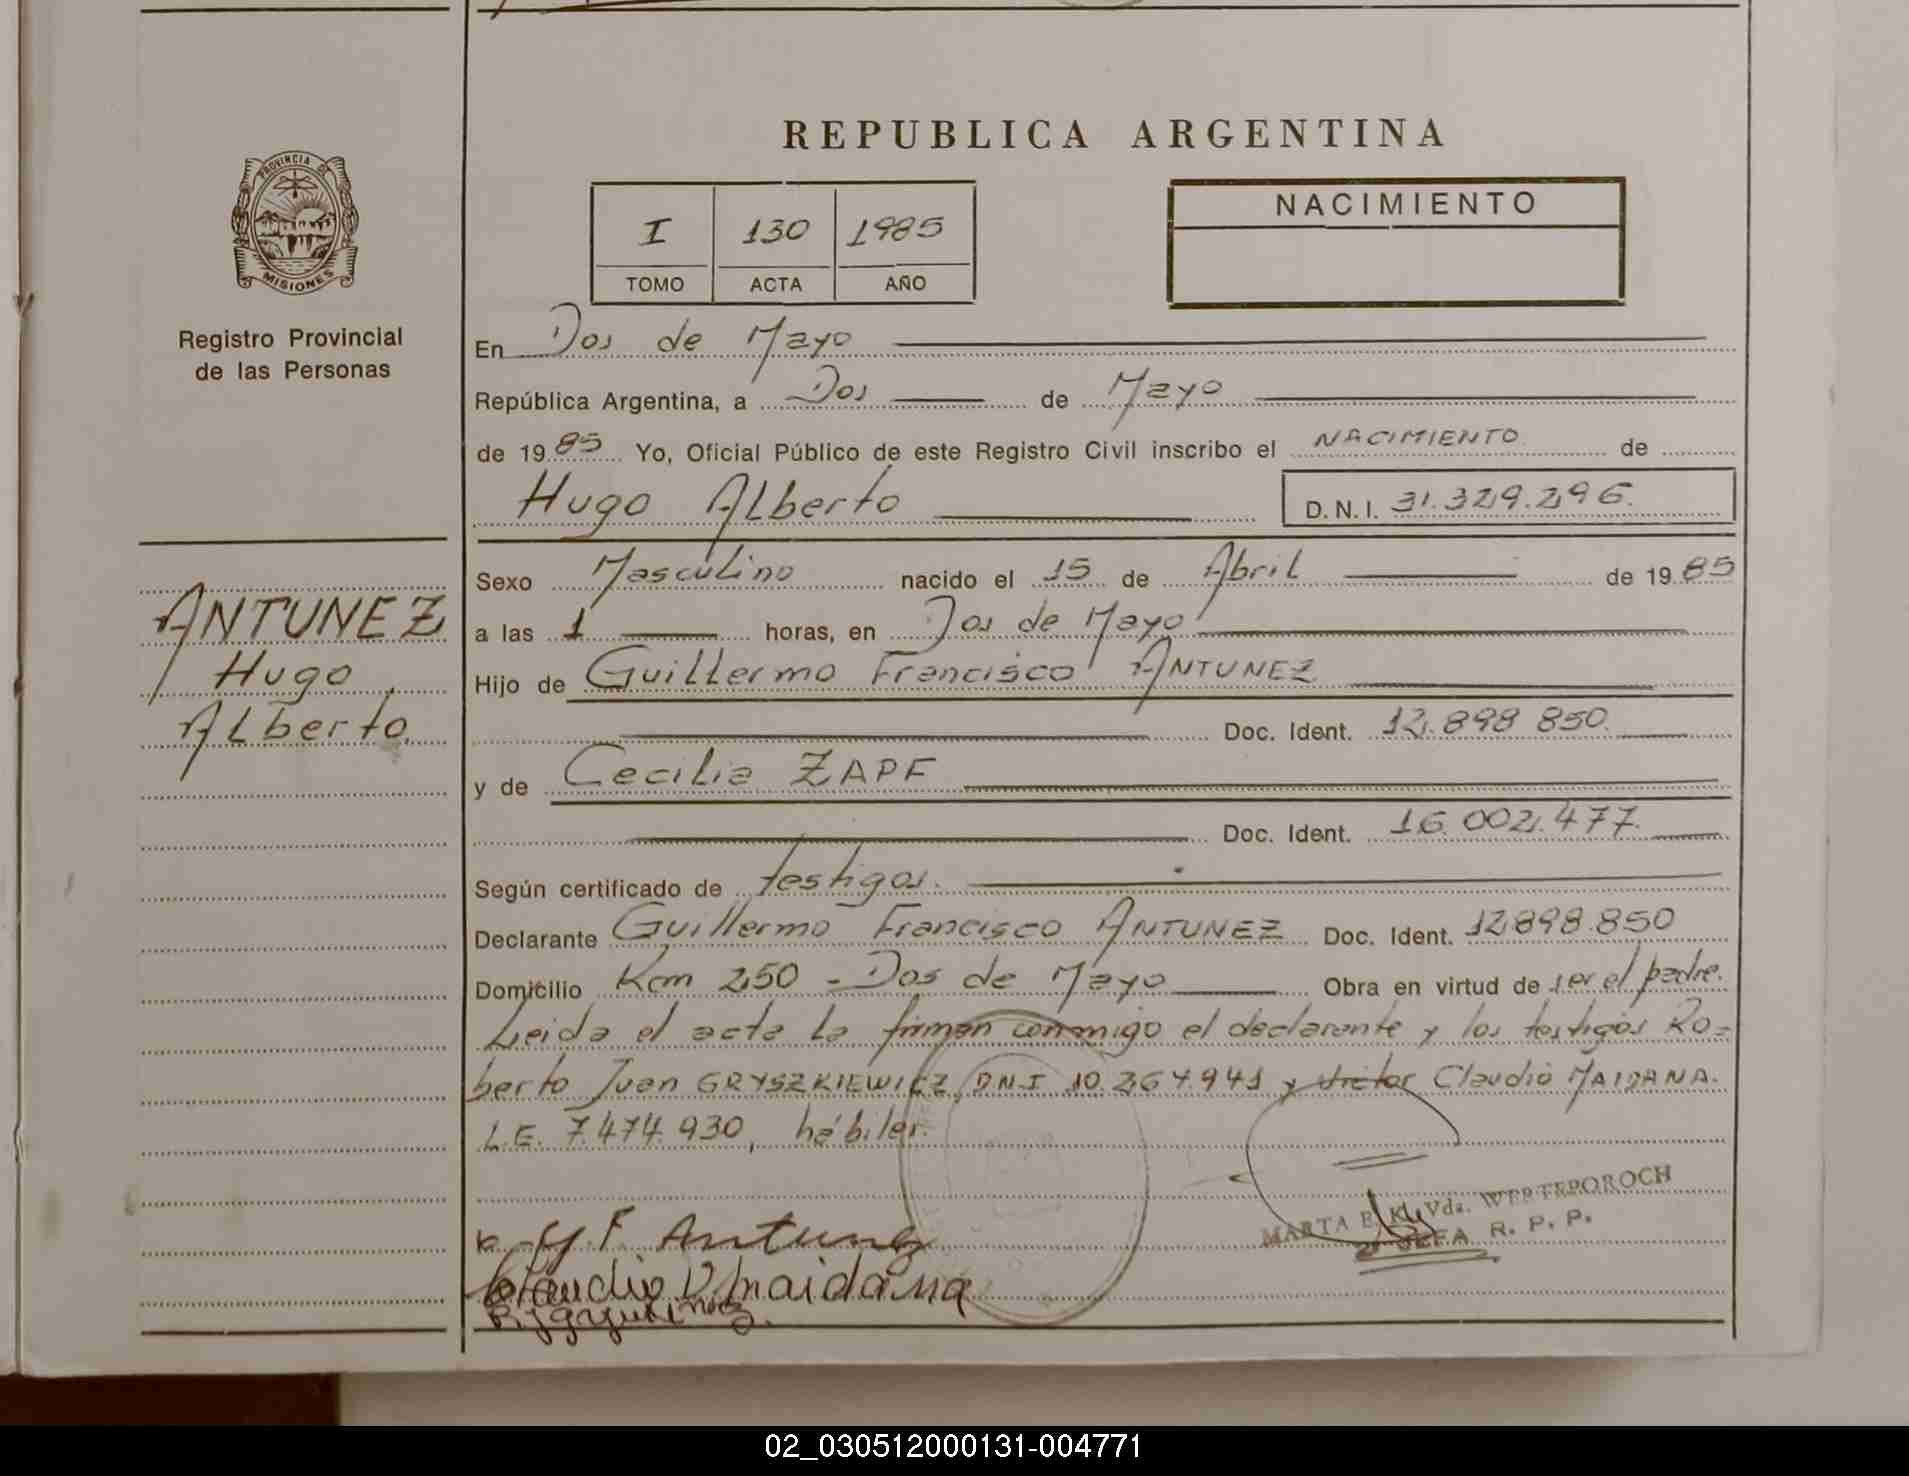 REPUBLICA ARGENTINA
PROVINCIA DE
MISIONES
Registro Provincial
de las Personas
I 130 1985
TOMO ACTA AÑO
NACIMIENTO
En Dos de Mayo
República Argentina, a Dos de Mayo
de 1985 Yo, Oficial Público de este Registro Civil inscribo el NACIMIENTO de
Hugo Alberto D.N.I. 31.329.296.
ANTUNEZ
Hugo
Alberto.
Sexo Masculino nacido el 15 de Abril de 1985
a las 1 horas, en Dos de Mayo
Hijo de Guillermo Francisco ANTUNEZ
Doc. Ident. 12.898 850.
y de Cecilia ZAPF
Doc. Ident. 16.002.477.
Según certificado de testigos.
Declarante Guillermo Francisco ANTUNEZ Doc. Ident. 12.898.850
Domicilio Km 250 - Dos de Mayo Obra en virtud de ser el padre.
Leida el acta la firman conmigo el declarante y los testigos Ro=
berto Juan GRYSZKIEWICZ, D.N.I 10.267.941 y Victor Claudio MAIDANA.
L.E. 7.474.930, hábiles.
G F Antunez
Claudio V. Maidana
MARTA E. Kl. Vda. WERTEPOROCH
2º JEFA R. P. P.
02_030512000131-004771